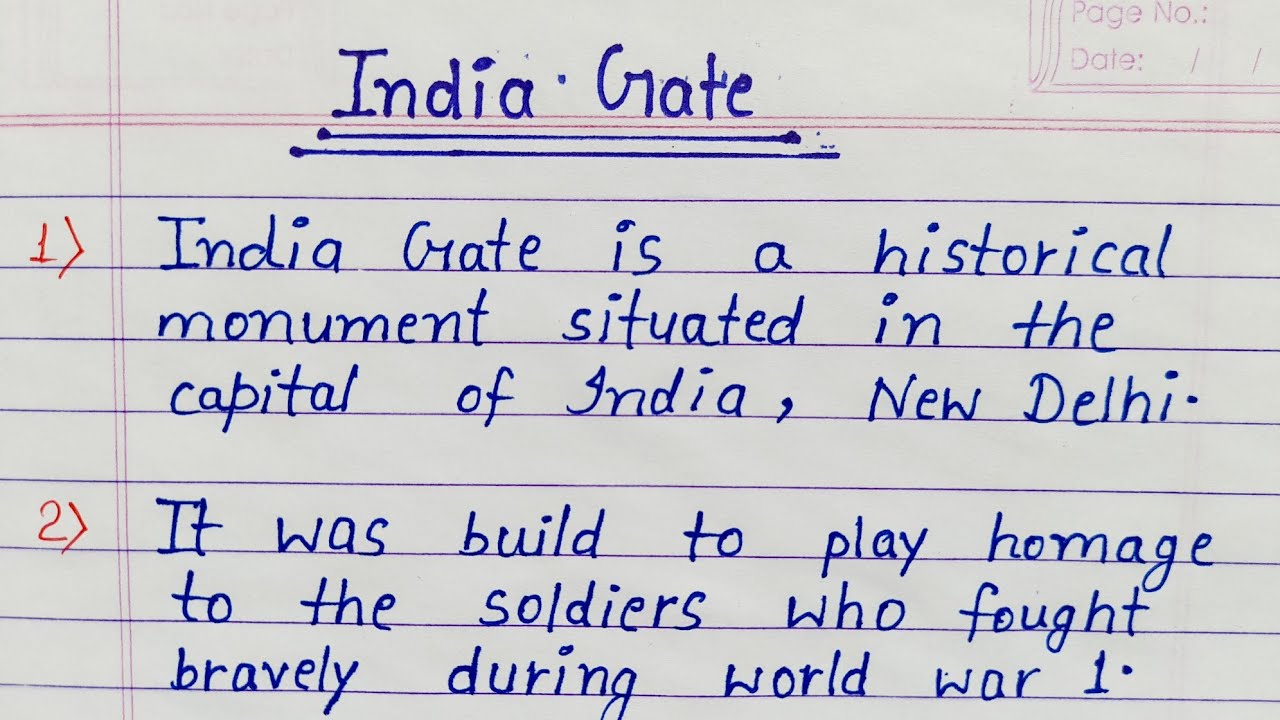 Page No.:
Date: / /
India Gate
1) India Gate is a historical
monument situated in the
capital of India, New Delhi.
2) It was build to play homage
to the soldiers who fought
bravely during world war 1.